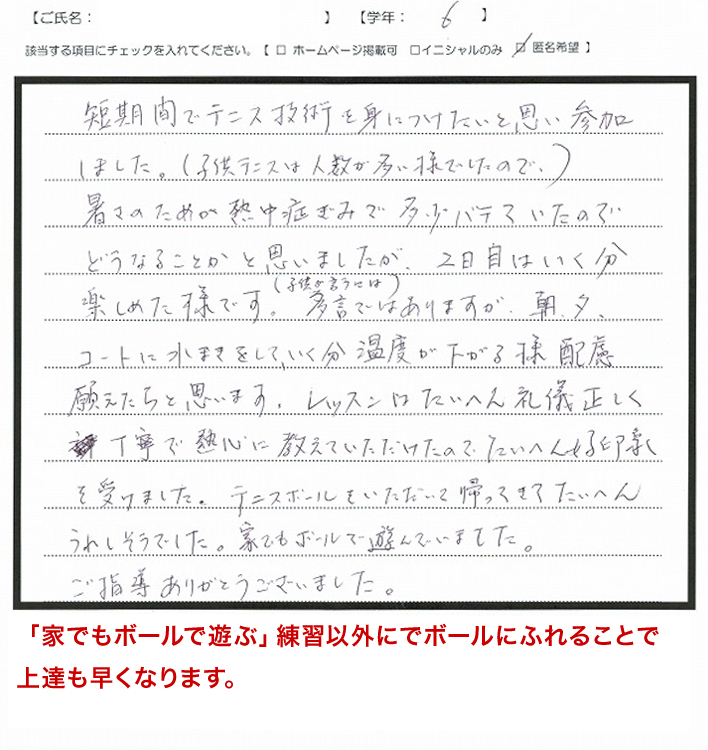 【ご氏名： 】 【学年： 6 】
該当する項目にチェックを入れてください。【 □ ホームページ掲載可 □イニシャルのみ ☑ 匿名希望 】
短期間でテニス技術を身につけたいと思い参加
しました。(子供テニスは人数が多い様でしたので、)
暑さのためか熱中症ぎみで多少バテていたので
どうなることかと思いましたが、2日目はいく分
楽しめた様です。(子供が言うには)多言ではありますが、朝、夕、
コートに水まきをして、いく分温度が下がる様配慮
願えたらと思います。レッスンはたいへん礼儀正しく
丁寧で熱心に教えていただけたので、たいへん好印象
を受けました。テニスボールをいただいて帰ってきてたいへん
うれしそうでした。家でもボールで遊んでいました。
ご指導ありがとうございました。
「家でもボールで遊ぶ」練習以外にでボールにふれることで
上達も早くなります。